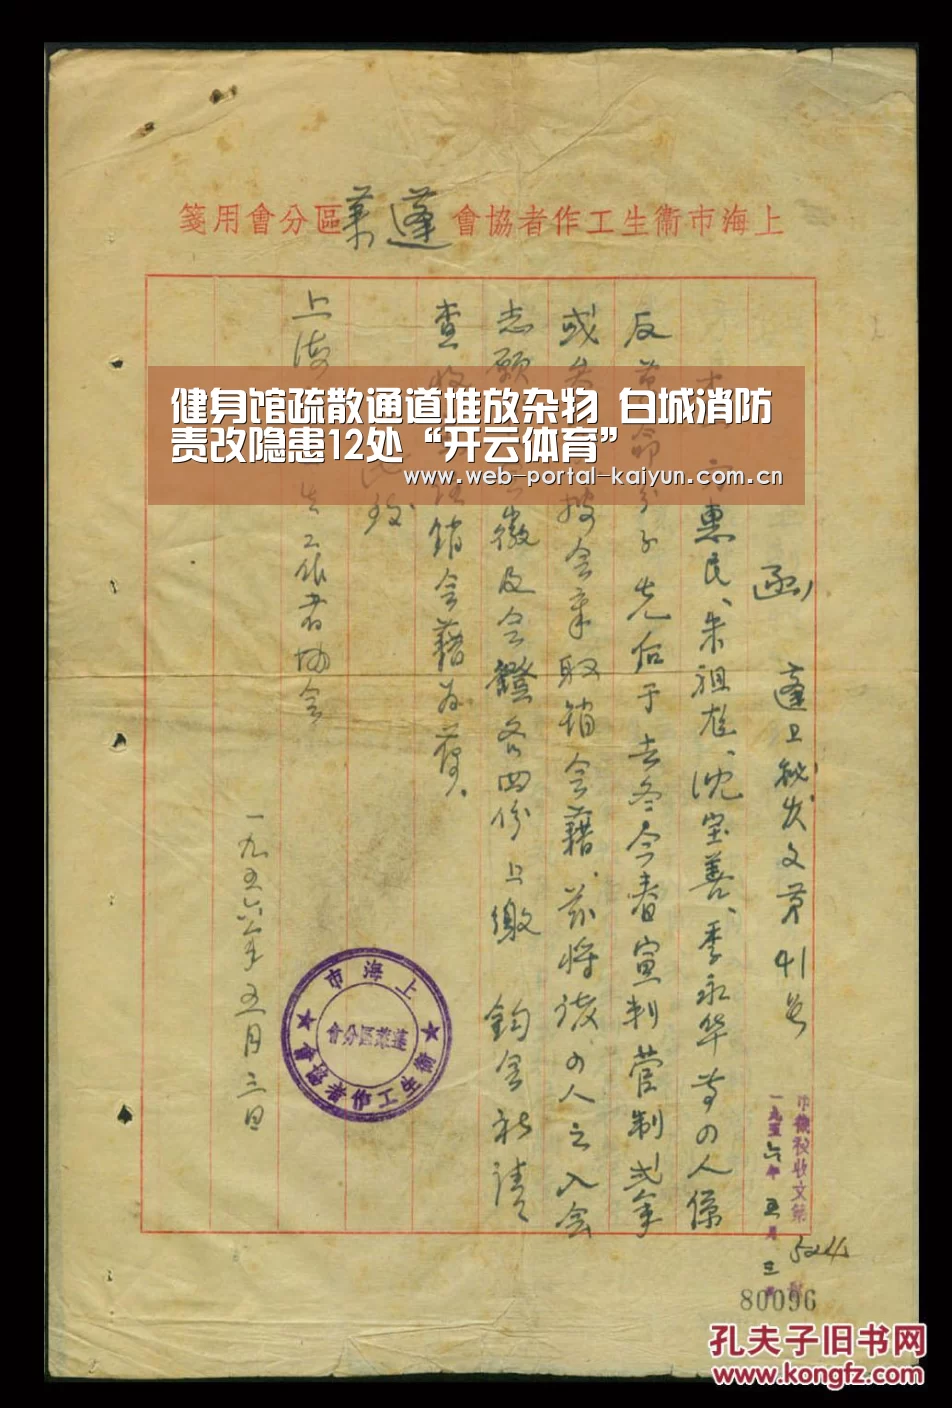 上海市衞生工作者協會蓬萊區分會用箋
健身馆疏散通道堆放杂物 白城消防
责改隐患12处“开云体育”
www.web-portal-kaiyun.com.cn
函 蓬卫秘发文第41号
惠民、朱祖雄、沈宝善、季永华等四人係
反革命分子先后于去冬今春宣判管制或牢
或 按会章取销会藉、兹将该四人之入会
志願 徽及会證各四份上缴 鈞会祈请
查收 销会藉为荷。
此致
上海 生工作者协会
一九五六年五月三日
上海市
衞生工作者協會
蓬萊區分會
市衞秘收文第 5244 號
一九五六年五月三日
80096
孔夫子旧书网
www.kongfz.com